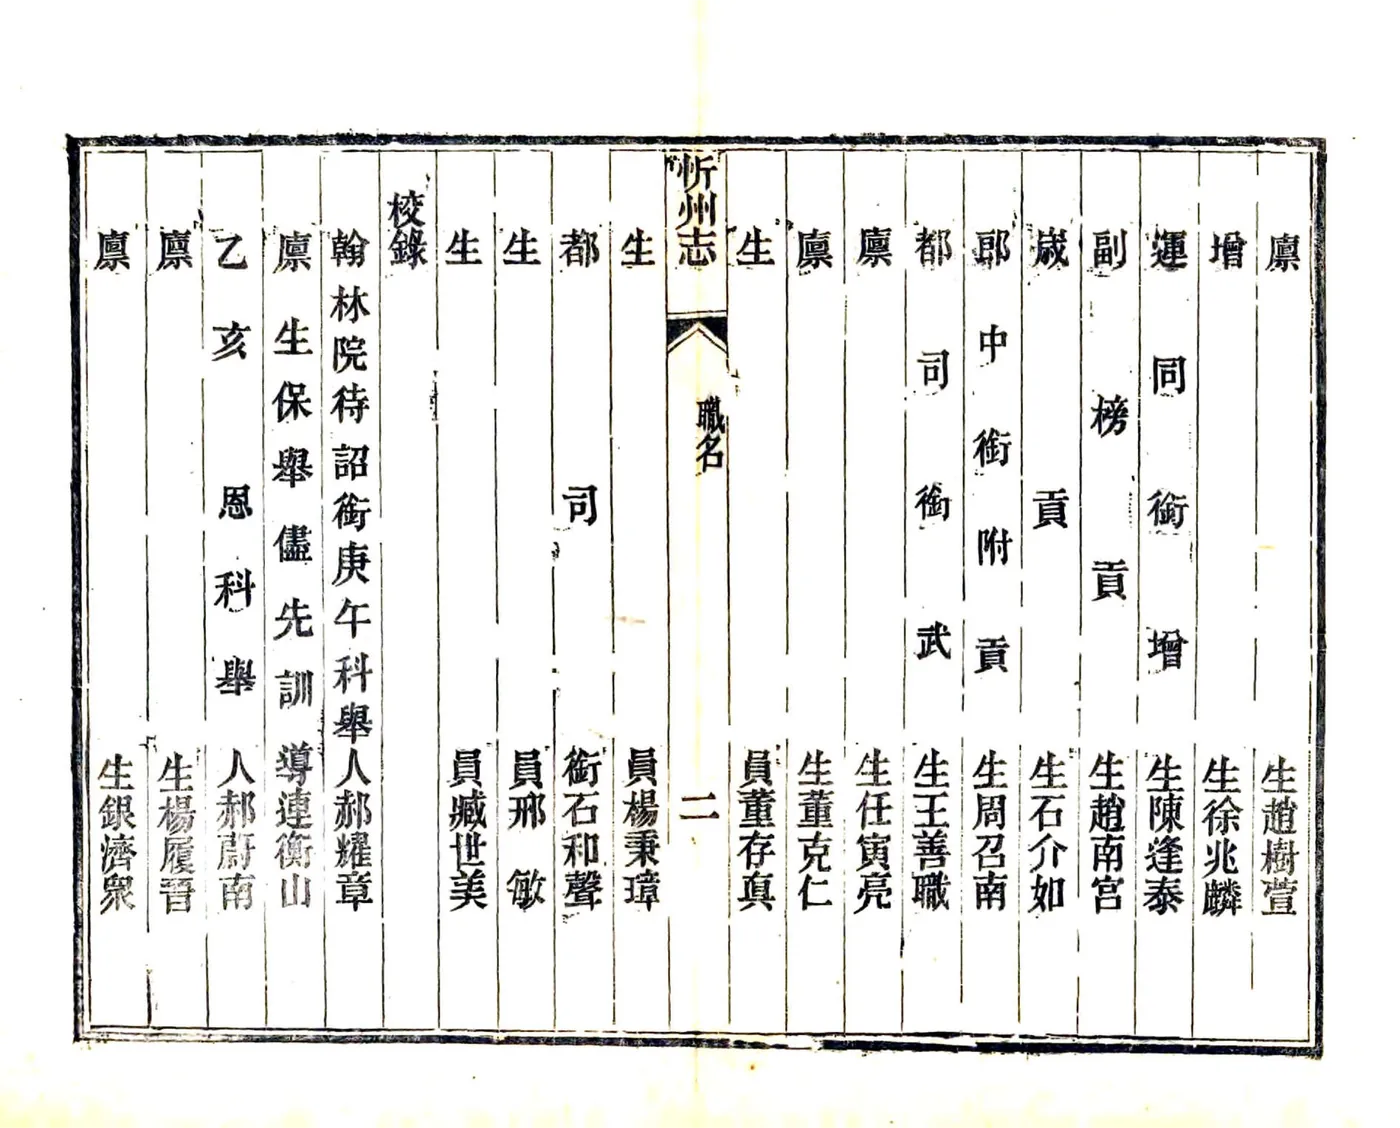 廪生趙樹萱
增生徐兆麟
運同銜增生陳逢泰
副榜貢生趙南宮
歲貢生石介如
郎中銜附貢生周召南
都司銜武生王善職
廪生任寅亮
廪生董克仁
生員董存真
忻州志
職名
二
生員楊秉璋
都司銜石和聲
生員邢敏
生員臧世美
校錄
翰林院待詔銜庚午科舉人郝耀章
廪生保舉儘先訓導連衡山
乙亥恩科舉人郝蔚南
廪生楊履晉
廪生銀濟眾